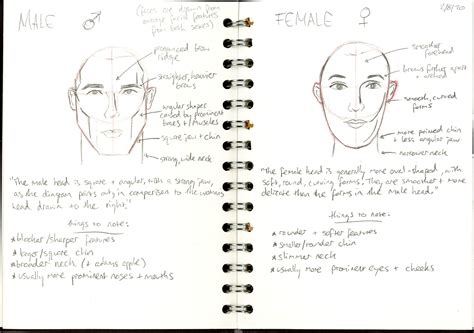 MALE ♂
(faces are drawn from
average facial features
from both sexes)
pronounced brow
ridge
straighter, heavier
brows
angular shapes
caused by prominent
bones + muscles
square jaw + chin
strong, wide neck
"The male head is square + angular, with a strong jaw,
as the diagram points out, in comparison to the womans
head drawn to the right."
things to note:
*blockier/sharper features
*larger/square chin
*broader neck (+ adams apple)
*usually more prominent noses + mouths
FEMALE ♀
2/8/20
smoother
forehead
brows further apart
+ arched
smooth, curved
forms
more pointed chin
+ less angular jaw
narrower neck
"The female head is generally more oval-shaped, with
soft, round, curving forms. They are smoother + more
delicate than the forms in the male head."
things to note:
*rounder + softer features
*smaller/rounder chin
*slimmer neck
*usually more prominent eyes + cheeks